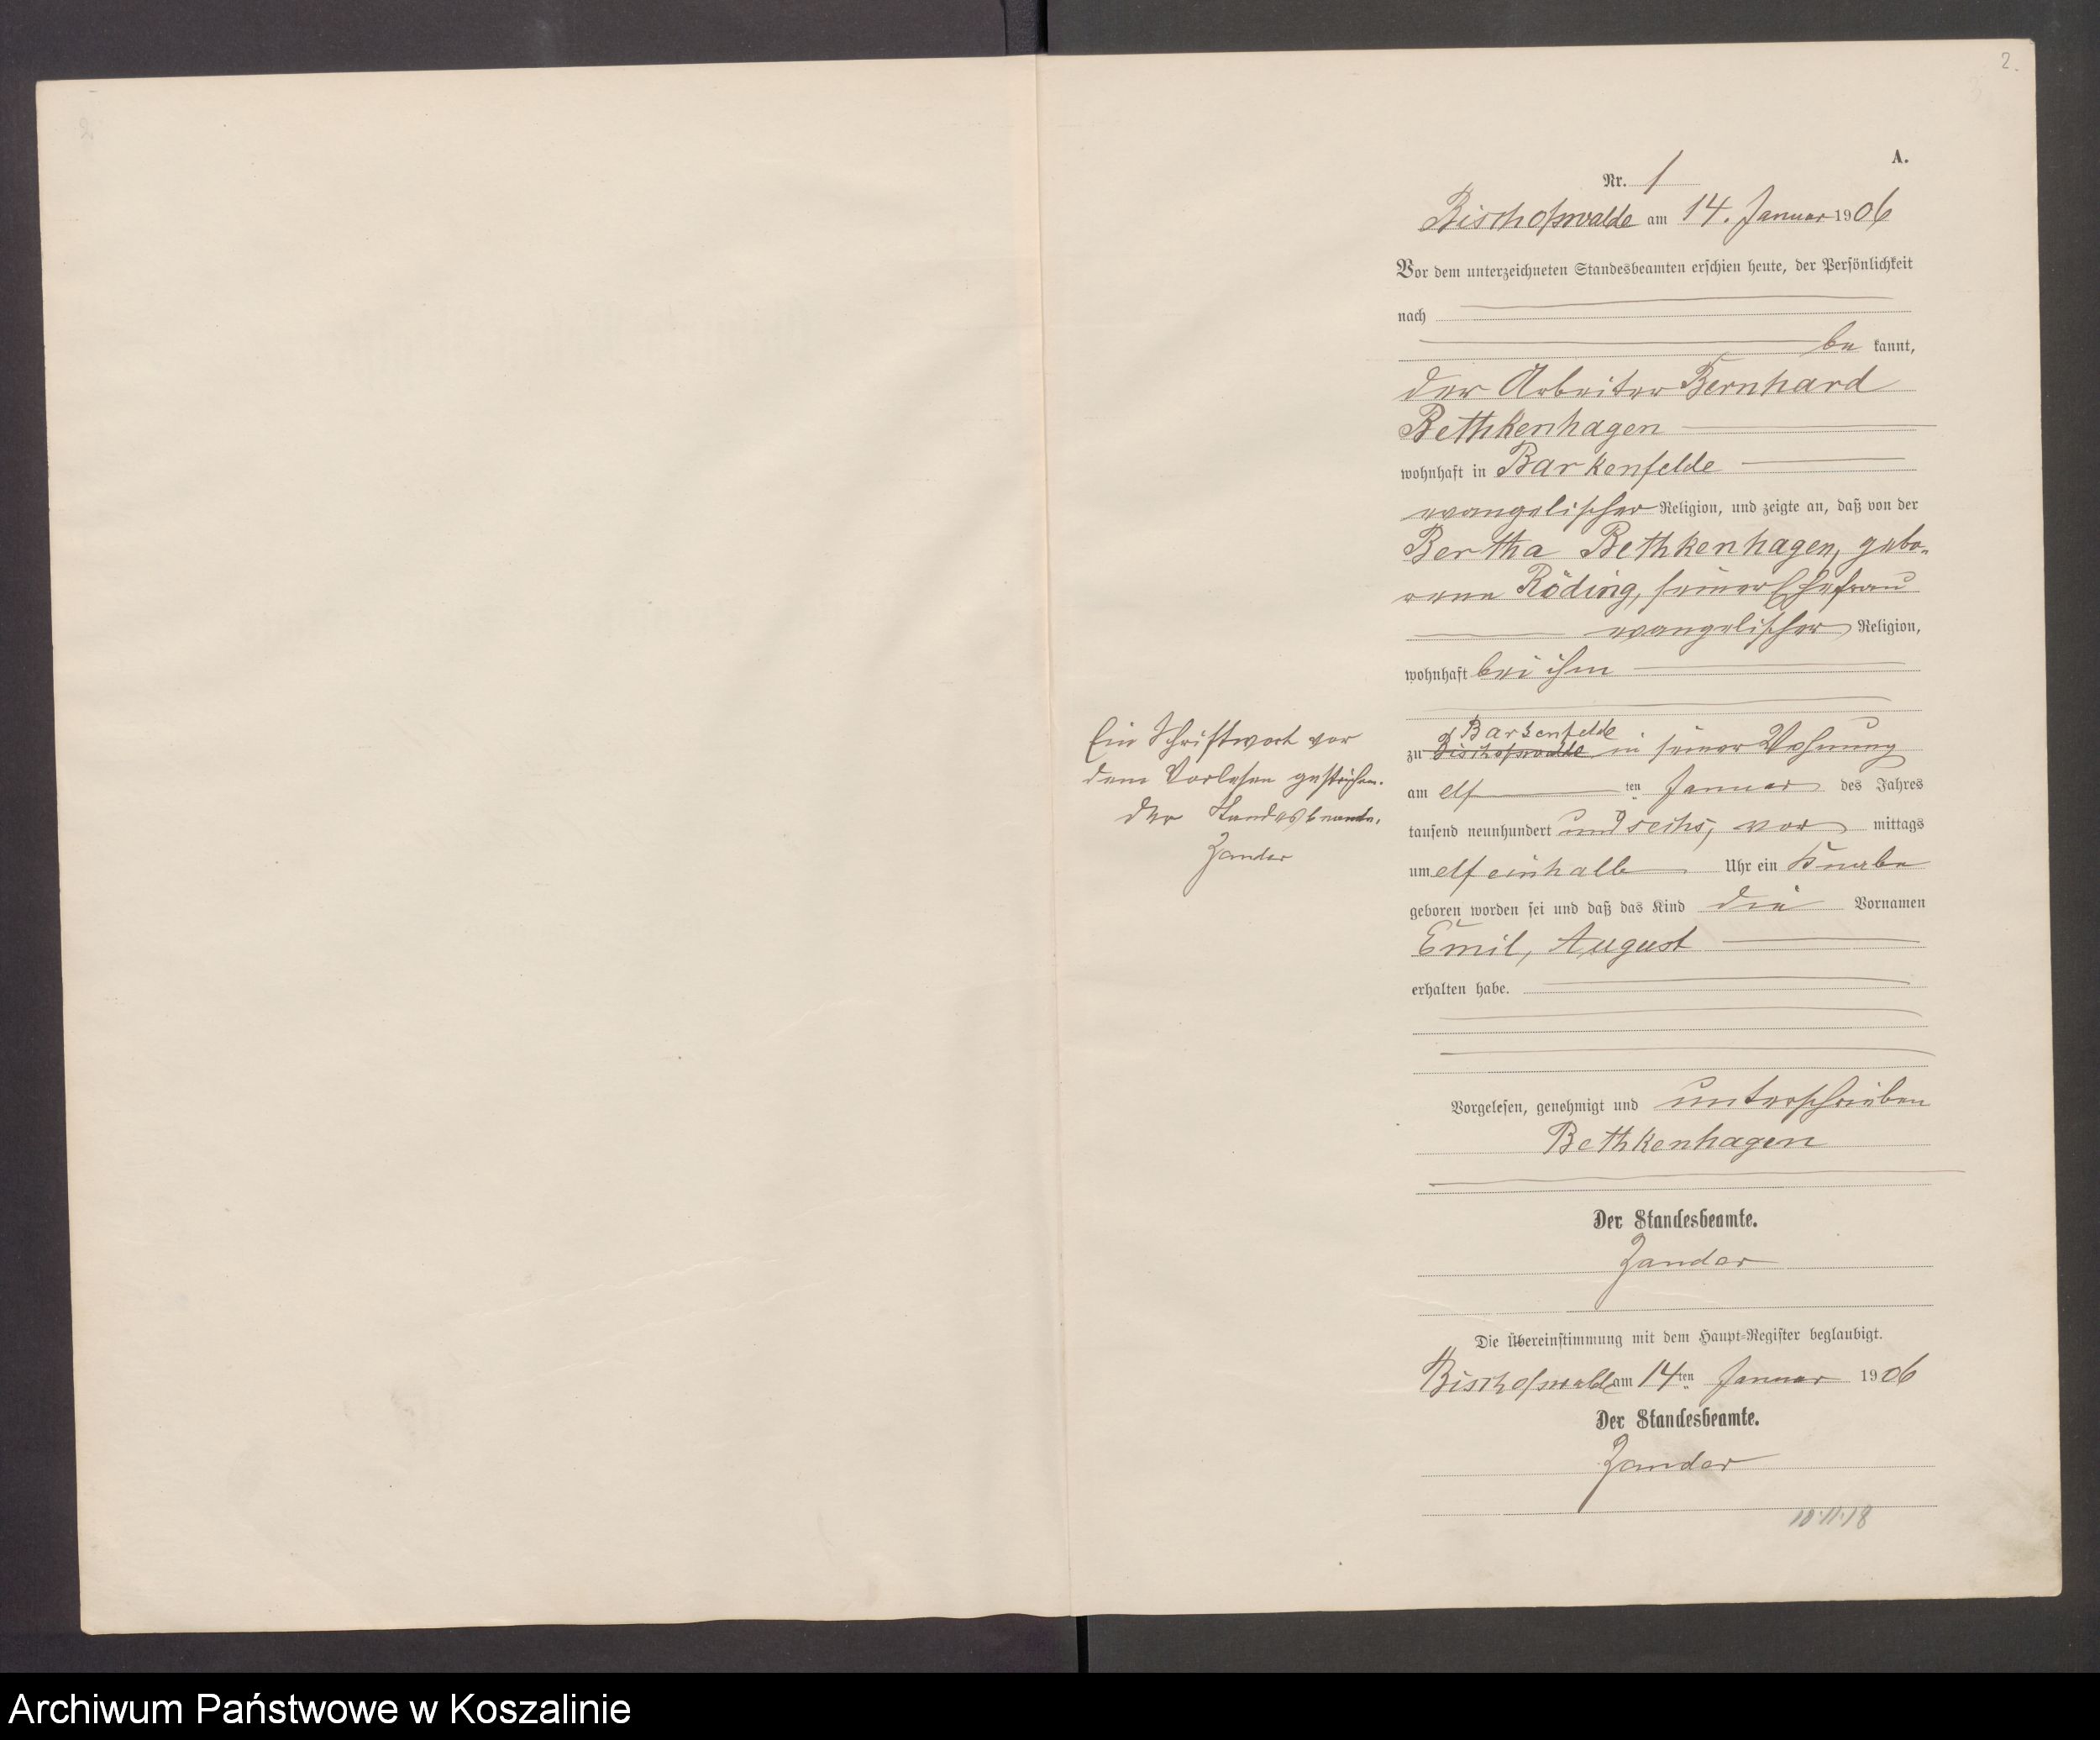 2.
A.
Nr. 1
Bischofswalde am 14. Januar 1906
Vor dem unterzeichneten Standesbeamten erschien heute, der Persönlichkeit
nach
be kannt,
der Arbeiter Bernhard
Bethkenhagen
wohnhaft in Barkenfelde
evangelischer Religion, und zeigte an, daß von der
Bertha Bethkenhagen, gebo-
rene Röding, seiner Ehefrau
evangelischer Religion,
wohnhaft bei ihm
Barkenfelde
zu Bischofswalde in seiner Wohnung
am elf ten Januar des Jahres
tausend neunhundert und sechs, vor mittags
um elf einhalb Uhr ein Knabe
geboren worden sei und daß das Kind die Vornamen
Emil, August
erhalten habe.
Ein Schriftwort vor
dem Vorlesen gestrichen.
Der Standesbeamte.
Zander
Vorgelesen, genehmigt und unterschrieben
Bethkenhagen
Der Standesbeamte.
Zander
Die Übereinstimmung mit dem Haupt-Register beglaubigt.
Bischofswalde am 14ten Januar 1906
Der Standesbeamte.
Zander
10.11.18
Archiwum Państwowe w Koszalinie